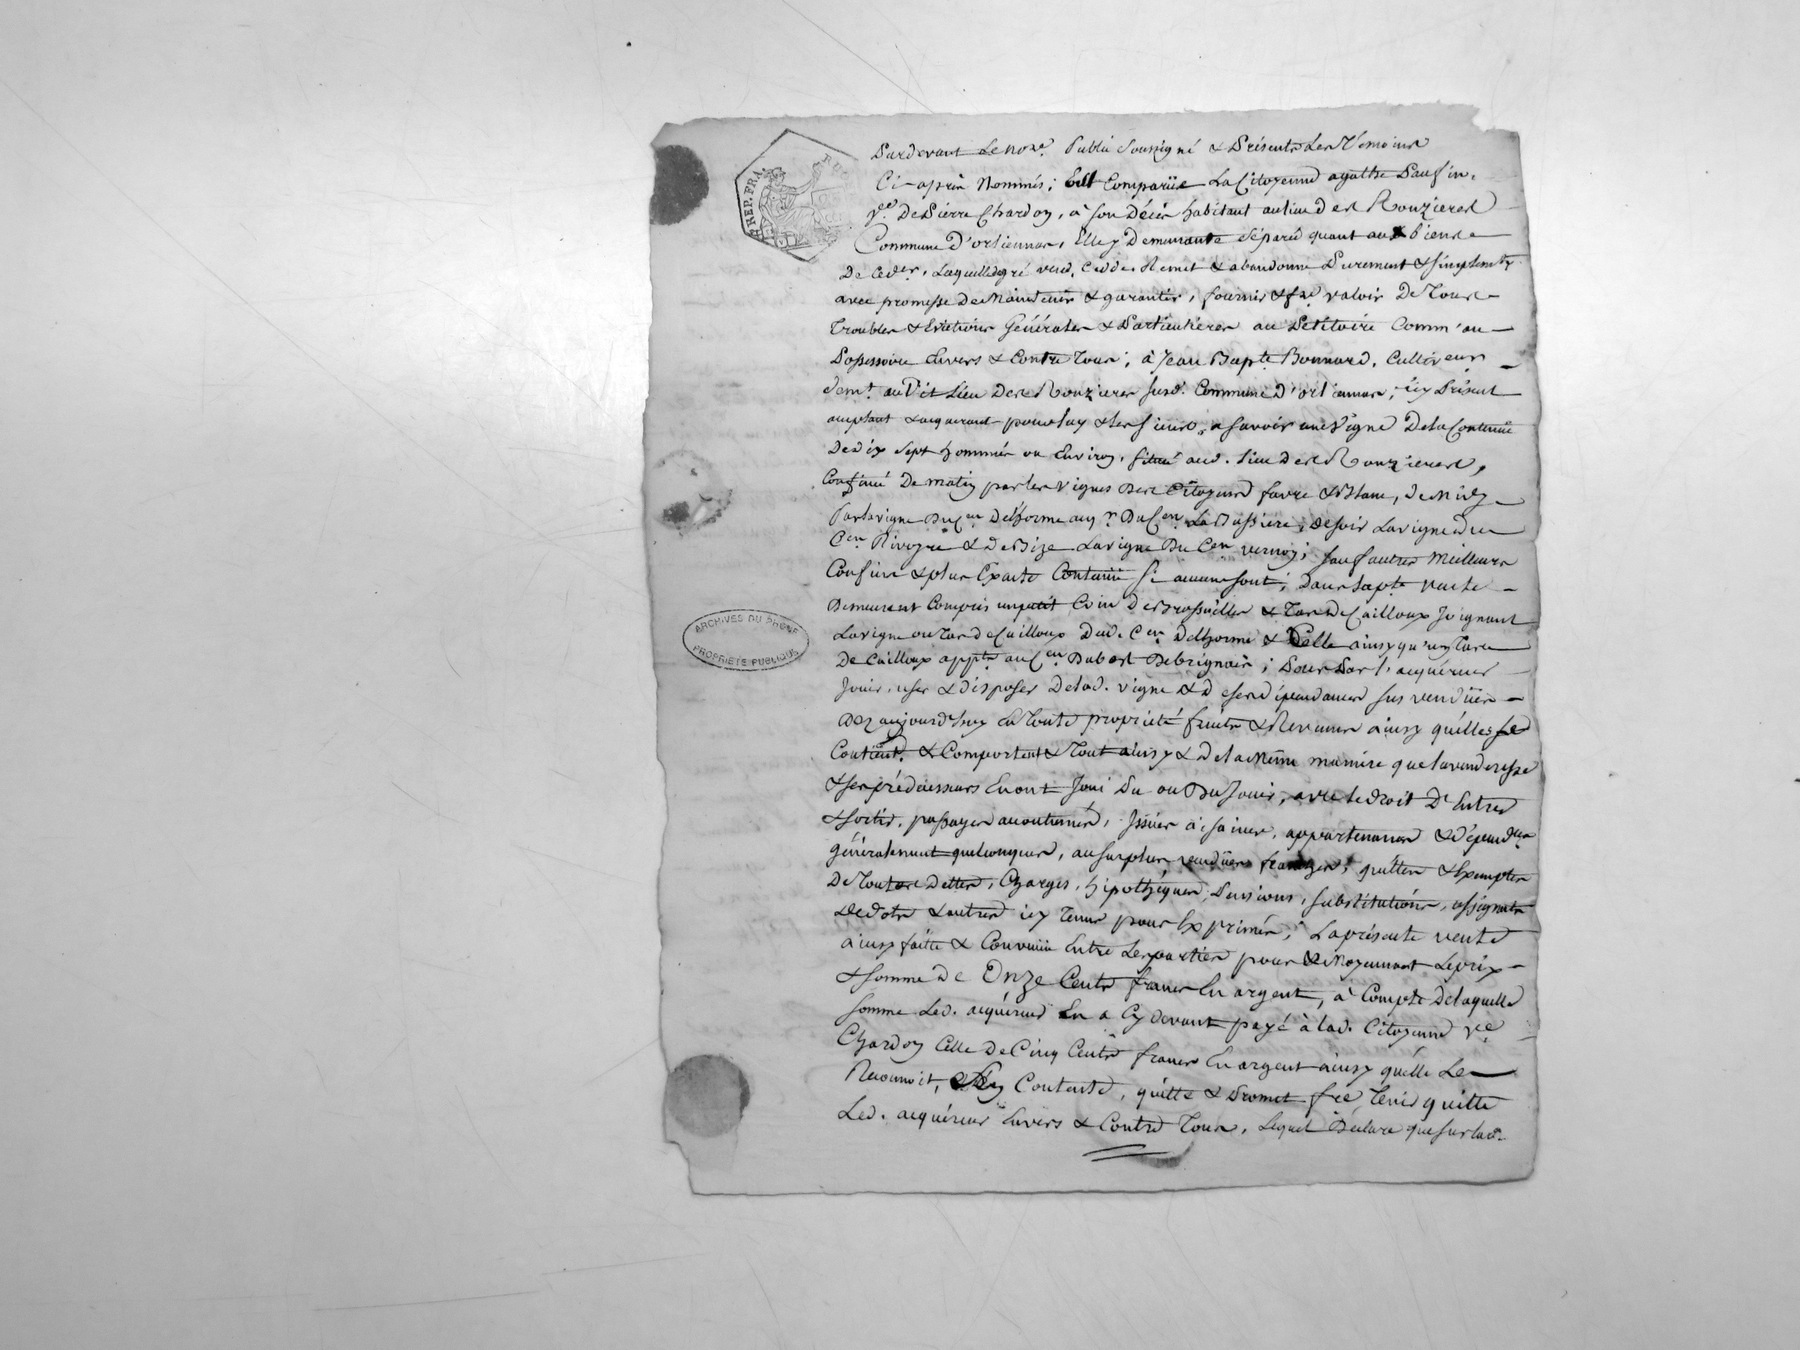 REP. FRA.
Pardevant le no.re Public soussigné & Présents les Témoins
Ci-après Nommés; Est Comparüe La Citoyenne agathe Paufin,
v.ve De Pierre Chardon, à son Décès habitant au lieu des Rouzieres
Commune D'orliennas, Elle y Demeurante séparée quant aux biens
De Ced.er, Laquelle de gré vend, Cedde, Remet & abandonne Purement & simplem.t
avec promesse De Maintenir & garantir, fournir & f.re valoir De Tous
Troubles & Evictions Générales & Particulieres au Petitoire Comm'au
Possessoire Envers & Contre Tous; à Jean Bapt.te Bonnard, Cultiveur
Dem.t au Dit Lieu Des Rouzieres susd. Commune D'orliennas, icy Présent
acceptant & acquerant pour luy & les siens, a savoir une Vigne De la Contenüe
De dix sept hommées ou Environ, située aud. Lieu des Rouzieres,
Confinée De matin par les Vignes Des Citoyens favre & Blanc, De Midy
Par la vigne Du C.en Delhorme au Du C.en La Bussiere, De soir La vigne du
C.en Rivoyre & De Bize La vigne Du C.en vernay; sauf autres Meilleurs
Confins & plus Exacte Contenüe si aucuns sont; Dans la p.te vente
Demeurent Compris un petit Coin De Brossailles & Tas De Cailloux Joignant
La vigne ou Tas De Cailloux Dud. C.en Delhorme & Celle ainsy qu'un Tas
De Cailloux appt.t au C.en Dubost De Brignais; Pour Par l'acquéreur
Jouir, user & disposer De lad. vigne & de ses dépendances sus vendües
Dez aujourd'huy En Toute propriété fruits & Revenus ainsy qu'elles se
Contient. & Comportent & Tout ainsy & De la Même maniére que la venderesse
& ses prédécesseurs En ont Joui Du ou Du Jouir, avec le droit D'Entrée
& sortie, passages accoutumés, Issües aisances, appartenances & dépend.ces
Généralement quelconques, au surplus vendües franches, quittes & Exemptes
De Toutes Dettes, Charges, hipothéques, Pensions, substitutions, assignats
De dots & autres icy Tenus pour Exprimés; La présente vente
ainsy faitte & Convenüe Entre Les parties pour & Moyennant Le prix
& somme De Onze Cents francs En argent, à Compte De laquelle
somme Led. acquéreur En a Cy devant payé à lad. Citoyenne v.ve
Chardon Celle De Cinq Cents francs En argent ainsy qu'elle Le
Reconnoit, Contente, quitte & Promet f.re Tenir quitte
Led. acquéreur Envers & Contre Tous, Lequel Déclare que sur lad.
ARCHIVES DU RHONE
PROPRIETE PUBLIQUE